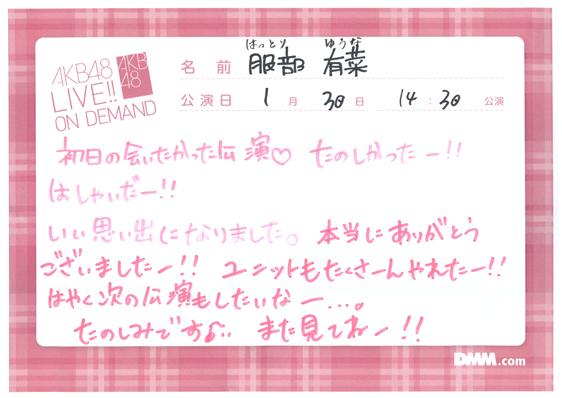 AKB48
LIVE!!
ON DEMAND
AKB
48
はっとり ゆうな
名前 服部 有菜
公演日 1月 30日 14:30 公演
初日の会いたかった公演♡ たのしかったー!!
はしゃいだー!!
いい思い出になりました。本当にありがとう
ございましたー!! ユニットもたくさーんやれたー!!
はやく次の公演もしたいなー…。
たのしみです♪.. また見てねー!!
DMM.com